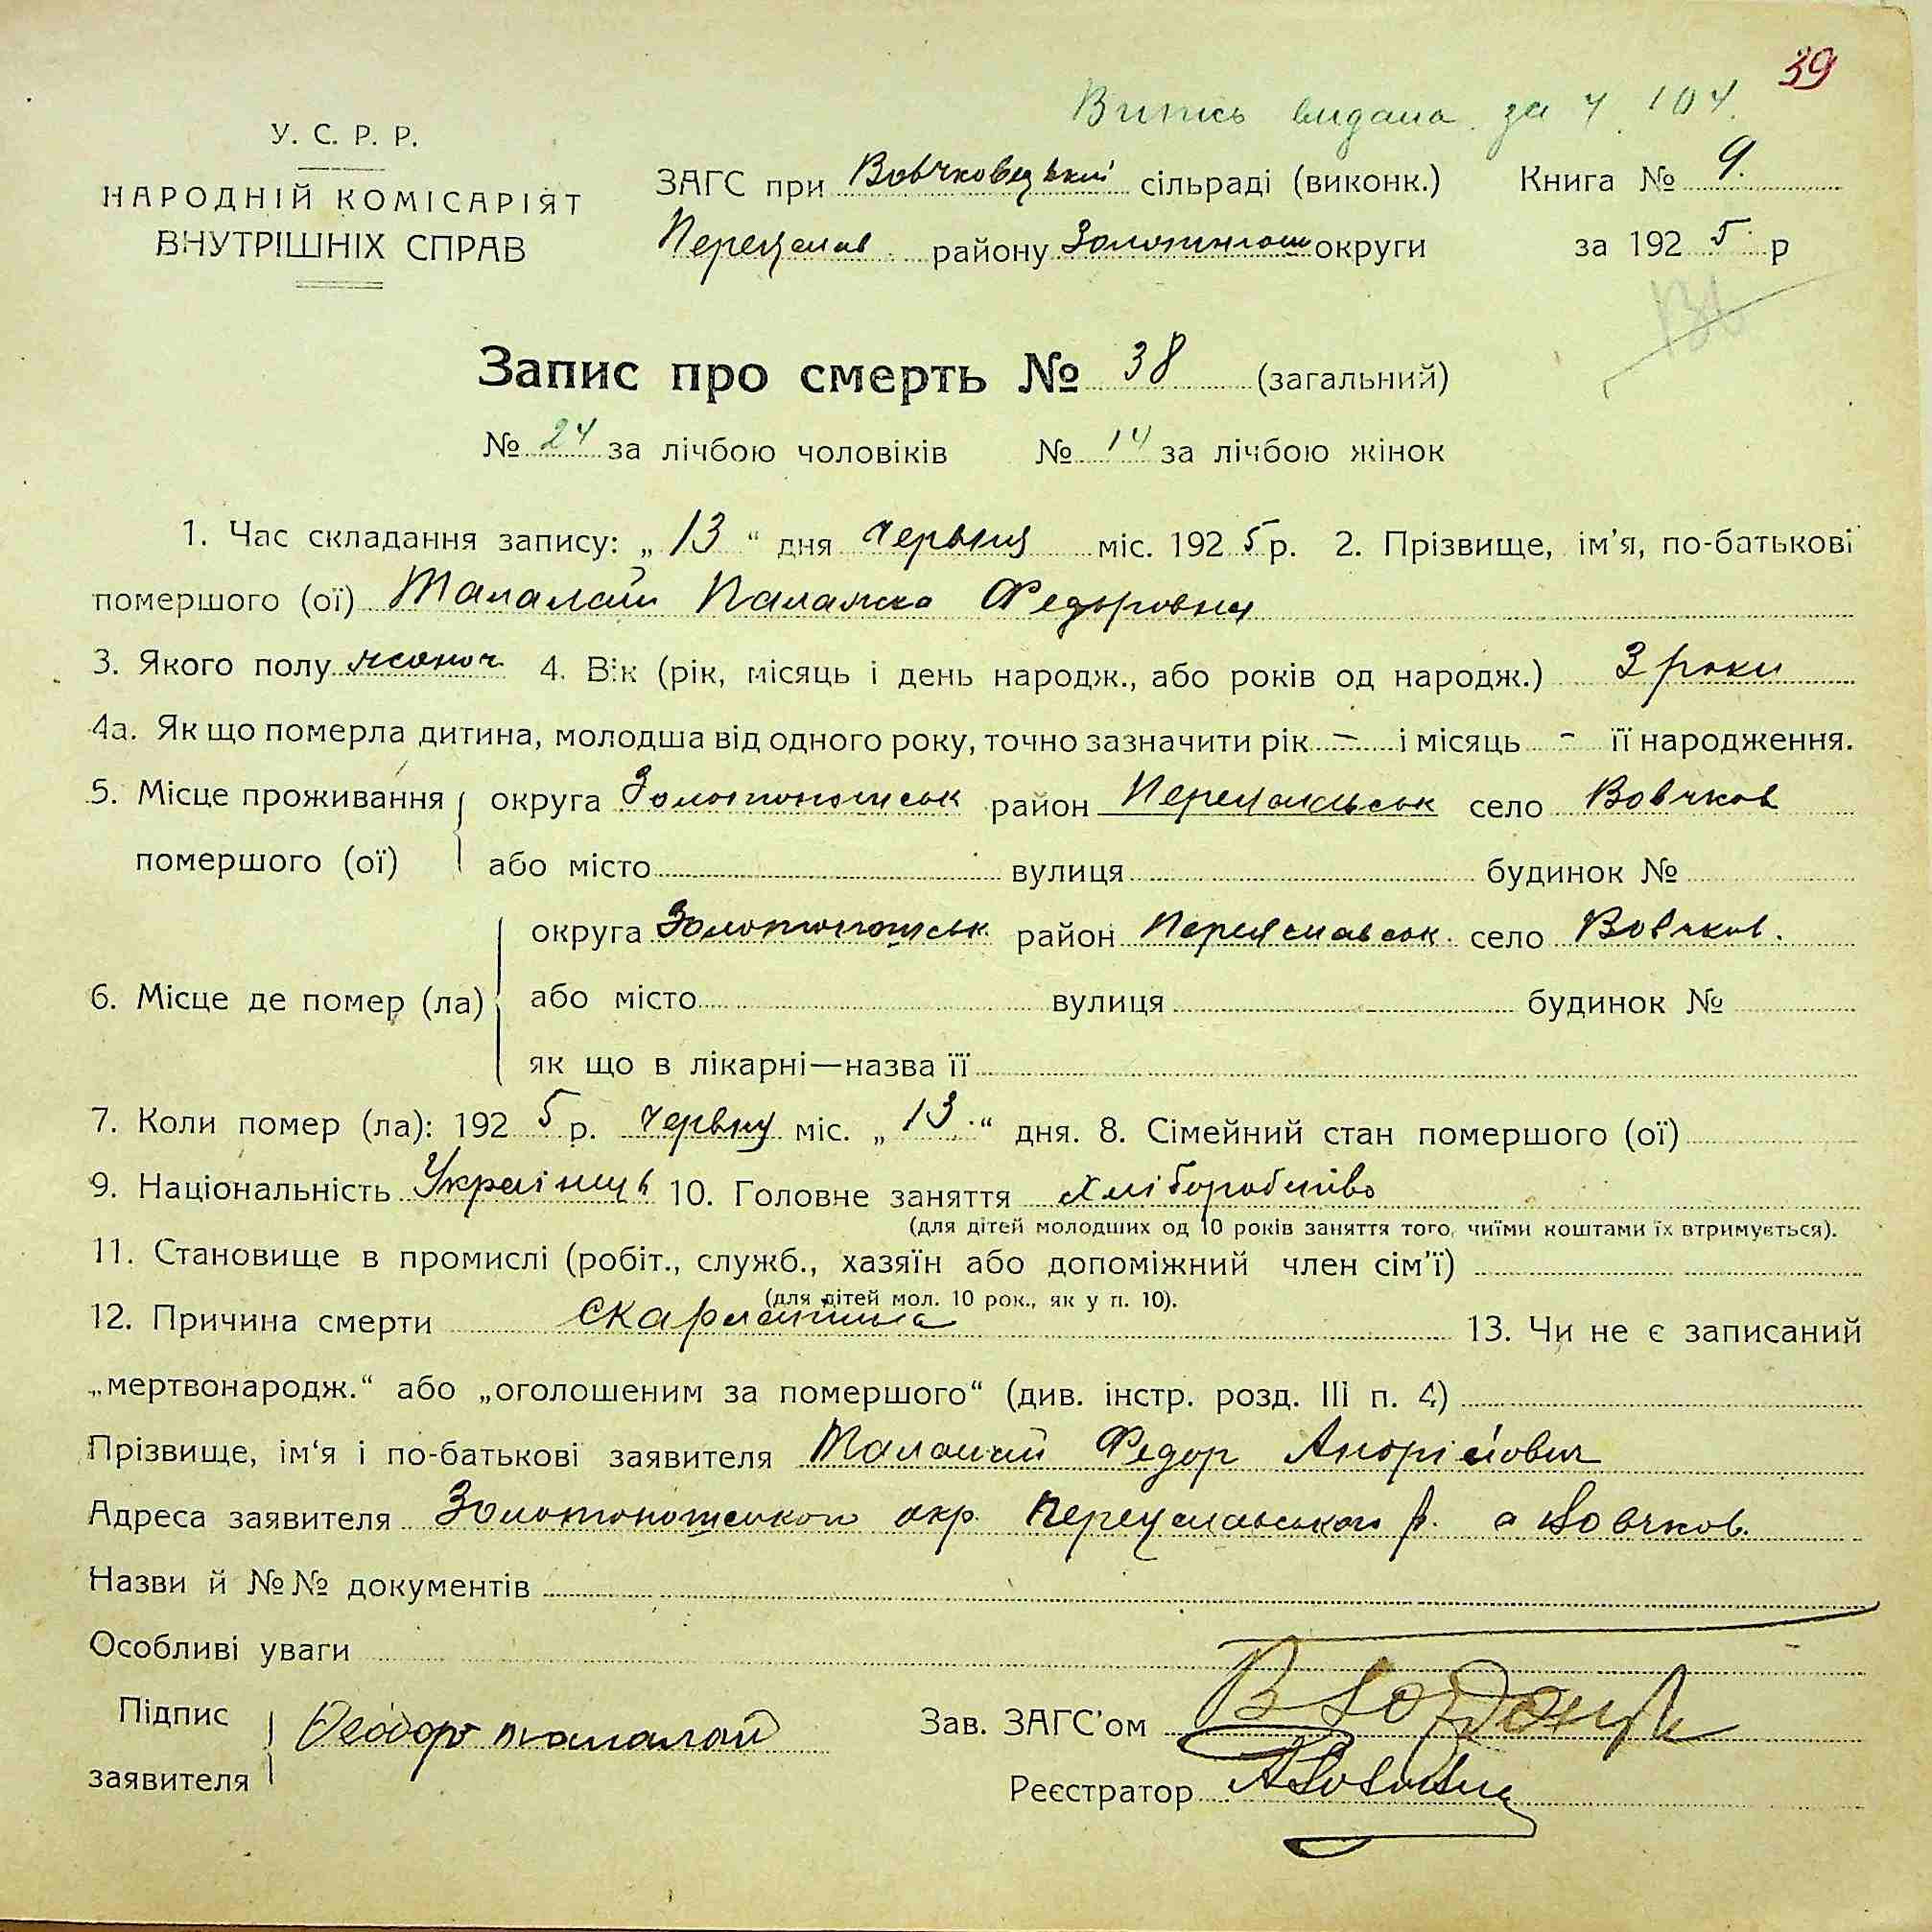 39
Випись видана за ч 104.
У. С. Р. Р.
НАРОДНІЙ КОМІСАРІЯТ
ВНУТРІШНІХ СПРАВ
ЗАГС при Вовчковецький сільраді (виконк.) Книга № 9.
Переяслав. району Золотоніош округи за 192 5 р
Запис про смерть № 38 (загальний)
№ 24 за лічбою чоловіків № 14 за лічбою жінок
1. Час складання запису: „ 13 “ дня червня міс. 192 5 р. 2. Прізвище, ім’я, по-батькові
помершого (ої) Талалай Палажка Федоровна
3. Якого полу жіноч. 4. Вік (рік, місяць і день народж., або років од народж.) 3 роки
4а. Як що померла дитина, молодша від одного року, точно зазначити рік – і місяць - її народження.
5. Місце проживання помершого (ої) округа Золотоношськ район Переяславськ село Вовчков
або місто вулиця будинок №
6. Місце де помер (ла) округа Золотоношськ район Переяславськ. село Вовчков.
або місто вулиця будинок №
як що в лікарні—назва її
7. Коли помер (ла): 192 5 р. червня міс. „ 13 “ дня. 8. Сімейний стан помершого (ої)
9. Національність 10. Головне заняття хліборобство
(для дітей молодших од 10 років заняття того, чиїми коштами їх втримується).
11. Становище в промислі (робіт., служб., хазяїн або допоміжний член сім’ї)
(для дітей мол. 10 рок., як у п. 10).
12. Причина смерти скарлатина 13. Чи не є записаний
„мертвонародж.“ або „оголошеним за помершого“ (див. інстр. розд. III п. 4)
Прізвище, ім‘я і по-батькові заявителя Талалай Федор Андрійович
Адреса заявителя Золотоношського окр. Переяславського р. с Вовчков.
Назви й №№ документів
Особливі уваги
Підпис заявителя Феодор талалай
Зав. ЗАГС’ом
Реєстратор